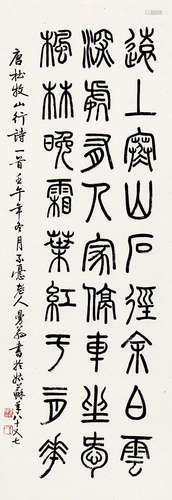 遠上寒山石徑余白雲
深處有人家停車坐愛
楓林晚霜葉紅于二月華
唐杜牧山行詩一首壬午年冬月不憂老人曼翁書於姑蘇年八十又七